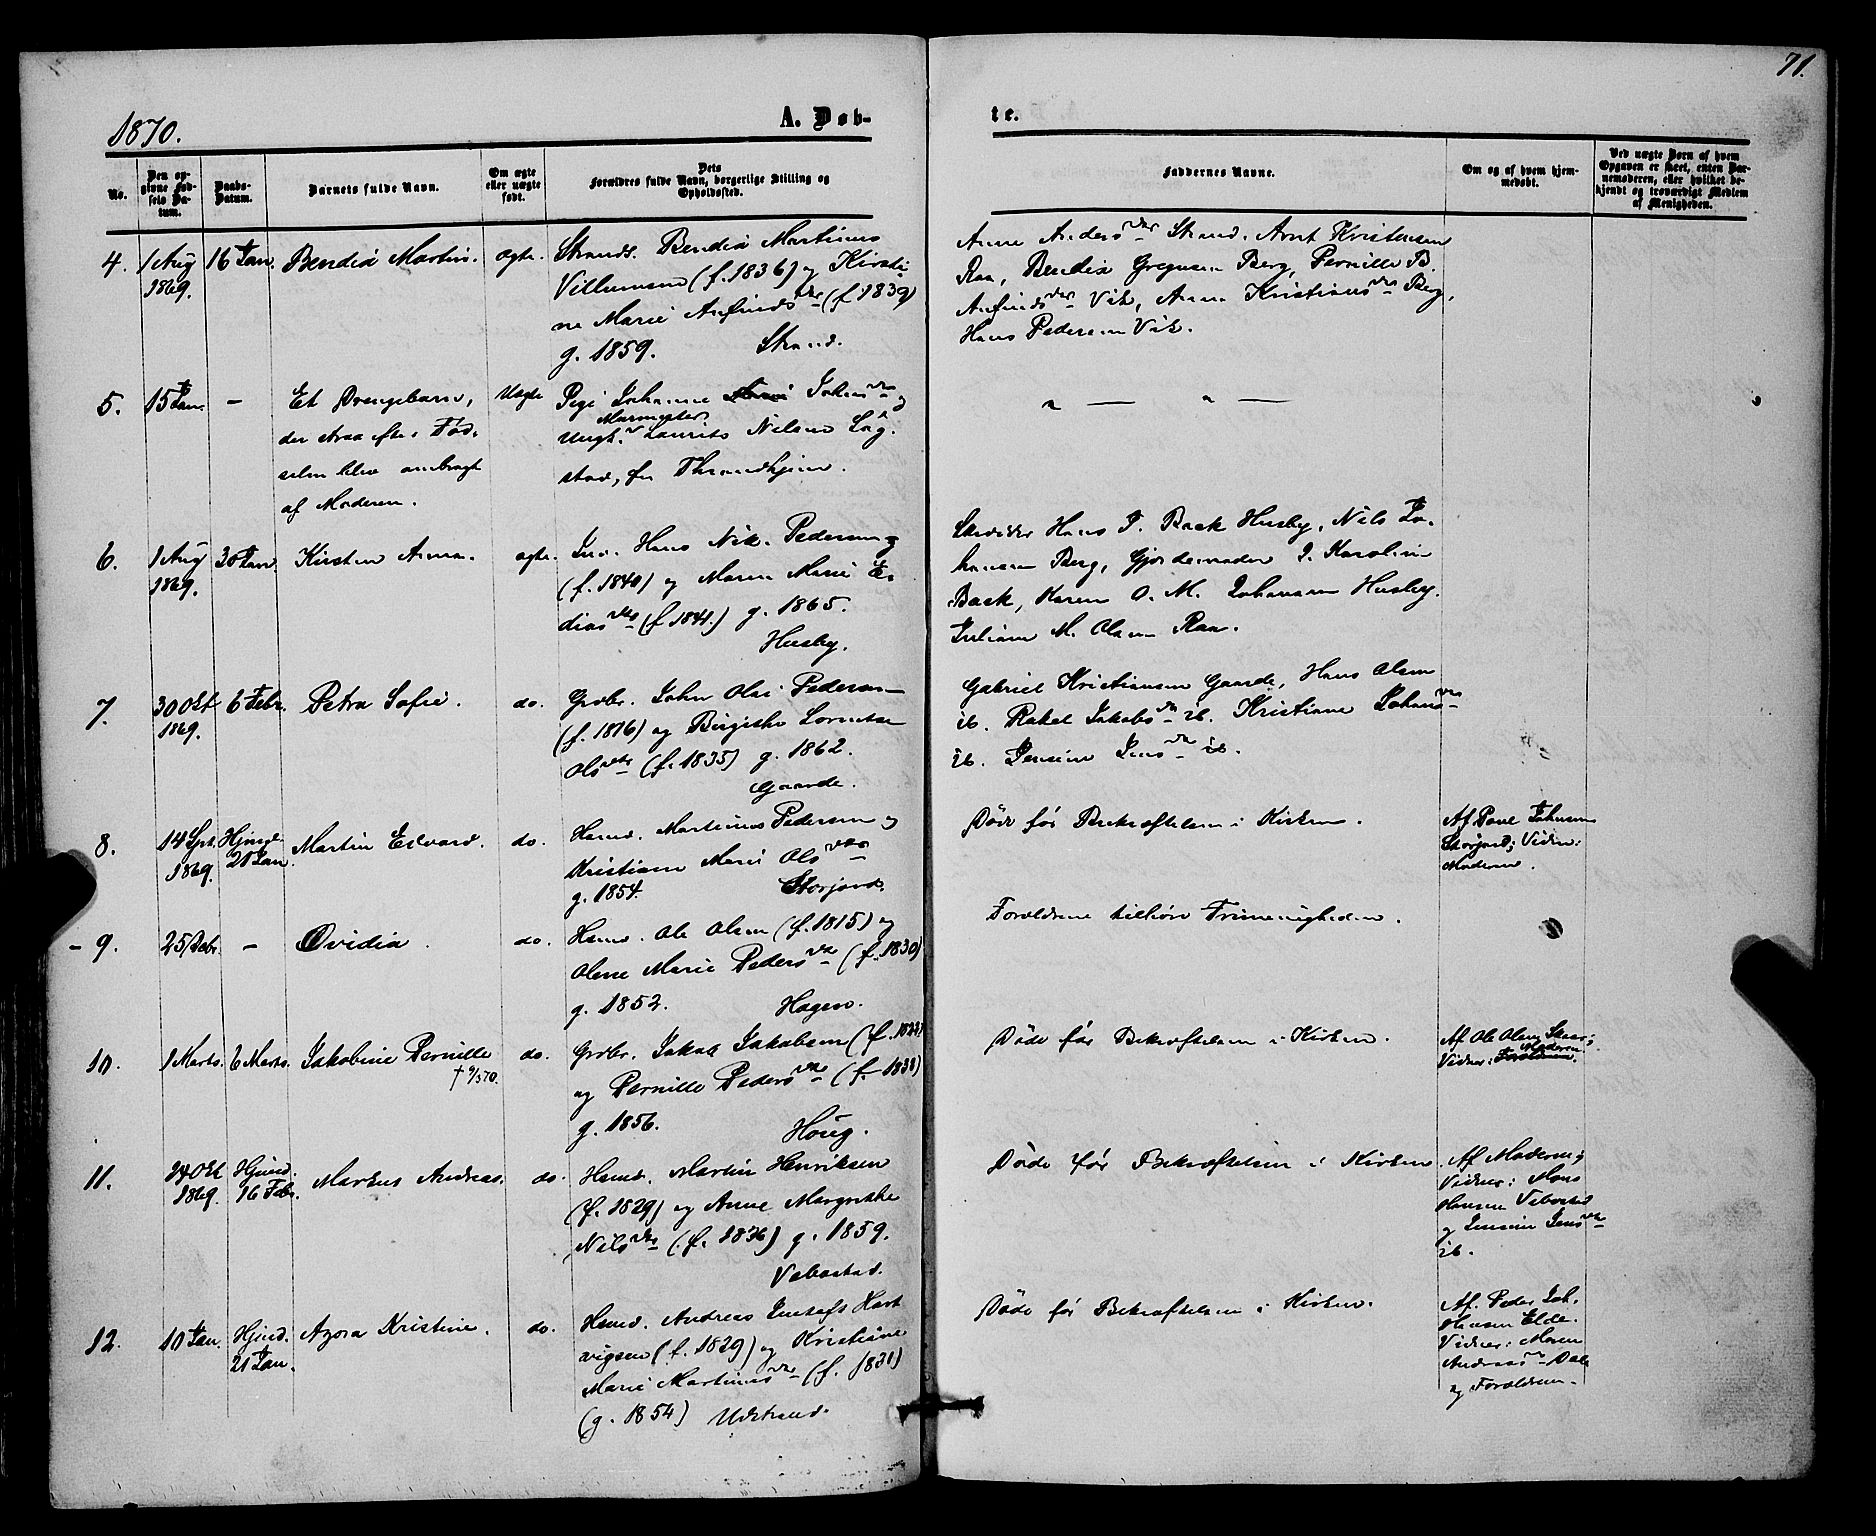 71.
1870.
A. Døb-
te.
No.
Den op-
givne Fød-
sels Da-
tum.
Daabs-
Datum.
Barnets fulde Navn.
Om ægte
eller uægte
født.
Dets
Forældres fulde Navn, borgerlige Stilling og
Opholdssted.
Faddernes Navne.
Om og af hvem hjem-
medøbt.
Ved uægte Børn af hvem
Opgaven er skeet, enten Bar-
nemoderen, eller hvilket be-
kjendt og troværdigt Medlem
af Menigheden.
4.
1 Aug
1869.
16 Jan.
Bendix Martin.
ægte.
Strands. Bendix Martinus
Villumsen (f. 1836) og Kirsti-
ne Marie Anfindsdtr (f. 1839)
g. 1859. Strand.
Anne Andersdtr Strand. Arnt Kristensen
Raa, Bendix Gregusen Berg, Pernille B.
Anfindsdtr Vik, Anne Kristiansdtr Berg,
Hans Pedersen Vik.
5.
15 Jan.
-
Et Drengebarn,
der strax efter Fød-
selen blev ombragt
af Moderen.
Uægte
Pige Johanne Johnsdtr og
Murmester
Ungk. Laurits Nilsen Løg-
stad, fra Throndhjem.
" — " —
6.
1 Aug
1869.
30 Jan.
Kirsten Anna.
ægte.
Inv. Hans Nik. Pedersen
(f. 1840) og Maren Marie E-
diasdtr (f. 1841.) g. 1865.
Husby.
Hans P. Back Husby, Nils Jo-
hansen Berg, Gjordemoder J. Karolin
Back, Karen O. M. Johansen Husby.
Juliane M. Olsen Raa.
7.
30 Okt
1869.
6 Febr.
Petra Sofie.
do.
Grdbr. John Olai Pedersen
(f. 1816) og Birgithe Lorntse
Olsdtr (f. 1835) g. 1862.
Gaarde.
Gabriel Kristiansen Gaarde, Hans Olsen
ib. Rakel Jakobsdtr ib. Kristiane Johansdtr
ib. Jensine Jensdtr ib.
8.
14 Spt.
1869.
Hjmd.
21 Jan.
Martin Edvard.
do.
Hsmd. Martinus Pedersen og
Kristiane Marie Olsdtr
g. 1854. Storjord.
Døde før Bekræftelsen i Kirken.
Af Paul Johnsen
Storjord; Vidne:
Moderen.
- 9.
25 Febr.
-
Ovidia.
do.
Hsmd. Ole Olsen (f. 1815) og
Olene Marie Pedersdtr (f. 1830)
g. 1852. Hagen.
Forældrene tilhøre Frimenigheden.
10.
1 Marts.
6 Marts.
Jakobine Pernille
† 9/3 70.
do.
Grdbr. Jakob Jakobsen (f. 1822)
og Pernille Pedersdtr (f. 1838)
g. 1856. Houg.
Døde før Bekræftelsen i Kirken.
Af Ole Olsen Skaar;
Moderen
Vidner: Forældrene.
11.
24 Okt
1869.
Hjmd.
16 Feb.
Markus Andreas.
do.
Hsmd. Martin Henriksen
(f. 1829) og Anne Margrethe
Nilsdtr (f. 1836) g. 1859.
Vabostad.
Døde før Bekræftelsen i Kirken
Af Moderen;
Vidner: Mons
Hansen Vabostad
og Jensine Jensdtr
ib.
12.
10 Jan.
Hjmd.
21 Jan.
Azora Kristine.
do.
Hsmd. Andreas Gustafs Hart
vigsen (f. 1829) og Kristiane
Marie Martinusdtr (f. 1831)
(g. 1854) Udstrand.
Døde før Bekræftelsen i Kirken.
Af Peder Joh.
Hansen Elde.
Vidner: Maren
Andreasdtr Dale
og Forældrene.